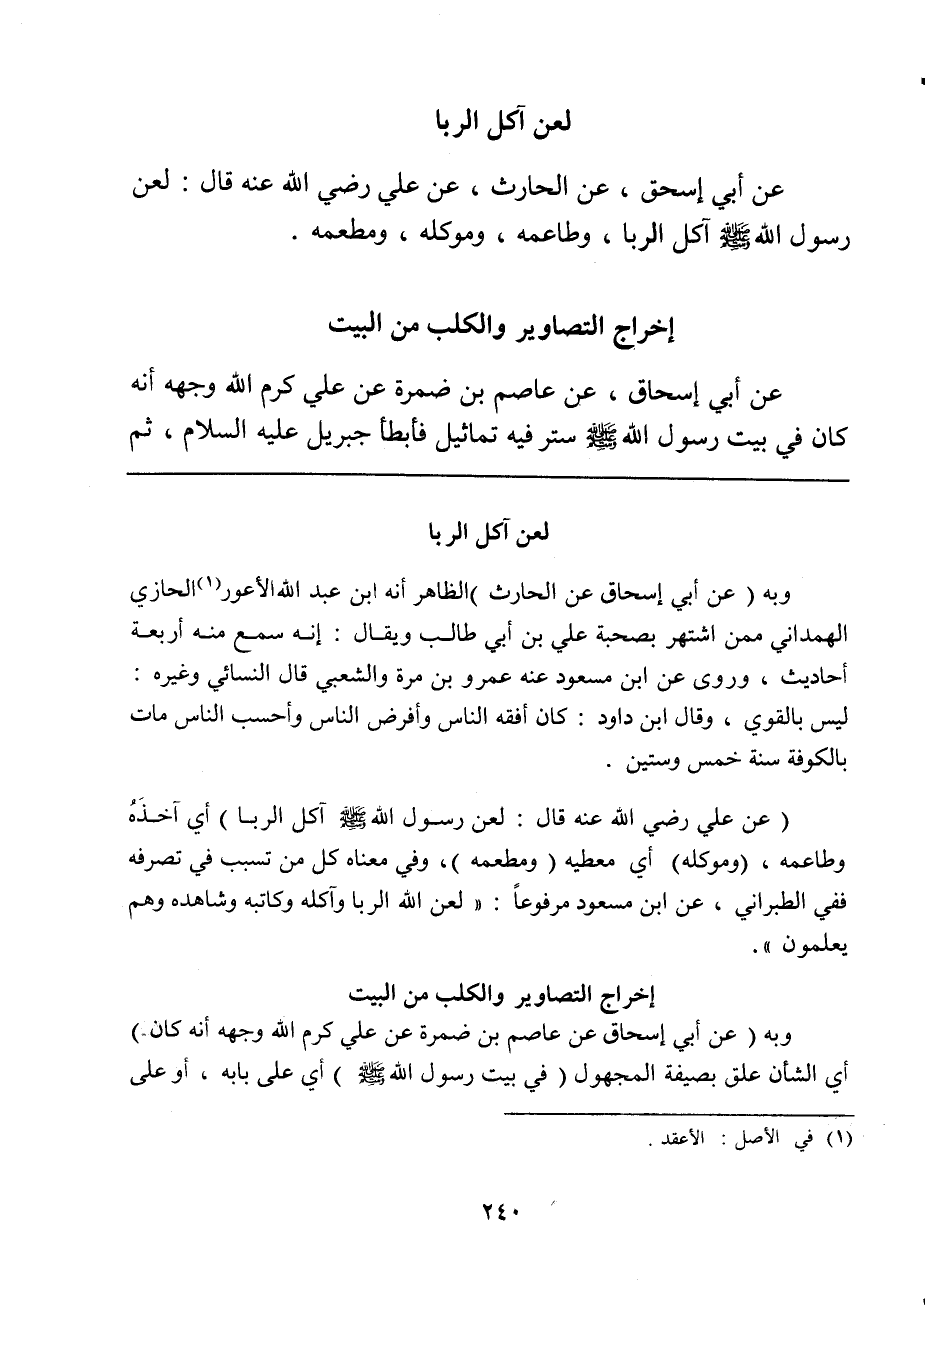 لعن آكل الربا
عن أبي إسحق ، عن الحارث ، عن علي رضي الله عنه قال : لعن
رسول الله ﷺ آكل الربا ، وطاعمه ، وموكله ، ومطعمه .
إخراج التصاوير والكلب من البيت
عن أبي إسحاق ، عن عاصم بن ضمرة عن علي كرم الله وجهه أنه
كان في بيت رسول الله ﷺ ستر فيه تماثيل فأبطأ جبريل عليه السلام ، ثم
لعن آكل الربا
وبه ( عن أبي إسحاق عن الحارث )الظاهر أنه ابن عبد الله الأعور(١)الحازي
الهمداني ممن اشتهر بصحبة علي بن أبي طالب ويقال : إنه سمع منه أربعة
أحاديث ، وروى عن ابن مسعود عنه عمرو بن مرة والشعبي قال النسائي وغيره :
ليس بالقوي ، وقال ابن داود : كان أفقه الناس وأفرض الناس وأحسب الناس مات
بالكوفة سنة خمس وستين .
( عن علي رضي الله عنه قال : لعن رسول الله ﷺ آكل الربا ) أي آخذَهُ
وطاعمه ، (وموكله) أي معطيه ( ومطعمه )، وفي معناه كل من تسبب في تصرفه
ففي الطبراني ، عن ابن مسعود مرفوعاً : « لعن الله الربا وآكله وكاتبه وشاهده وهم
يعلمون ».
إخراج التصاوير والكلب من البيت
وبه ( عن أبي إسحاق عن عاصم بن ضمرة عن علي كرم الله وجهه أنه كان )
أي الشأن علق بصيغة المجهول ( في بيت رسول الله ﷺ ) أي على بابه ، أو على
(١) في الأصل : الأعقد .
٢٤٠